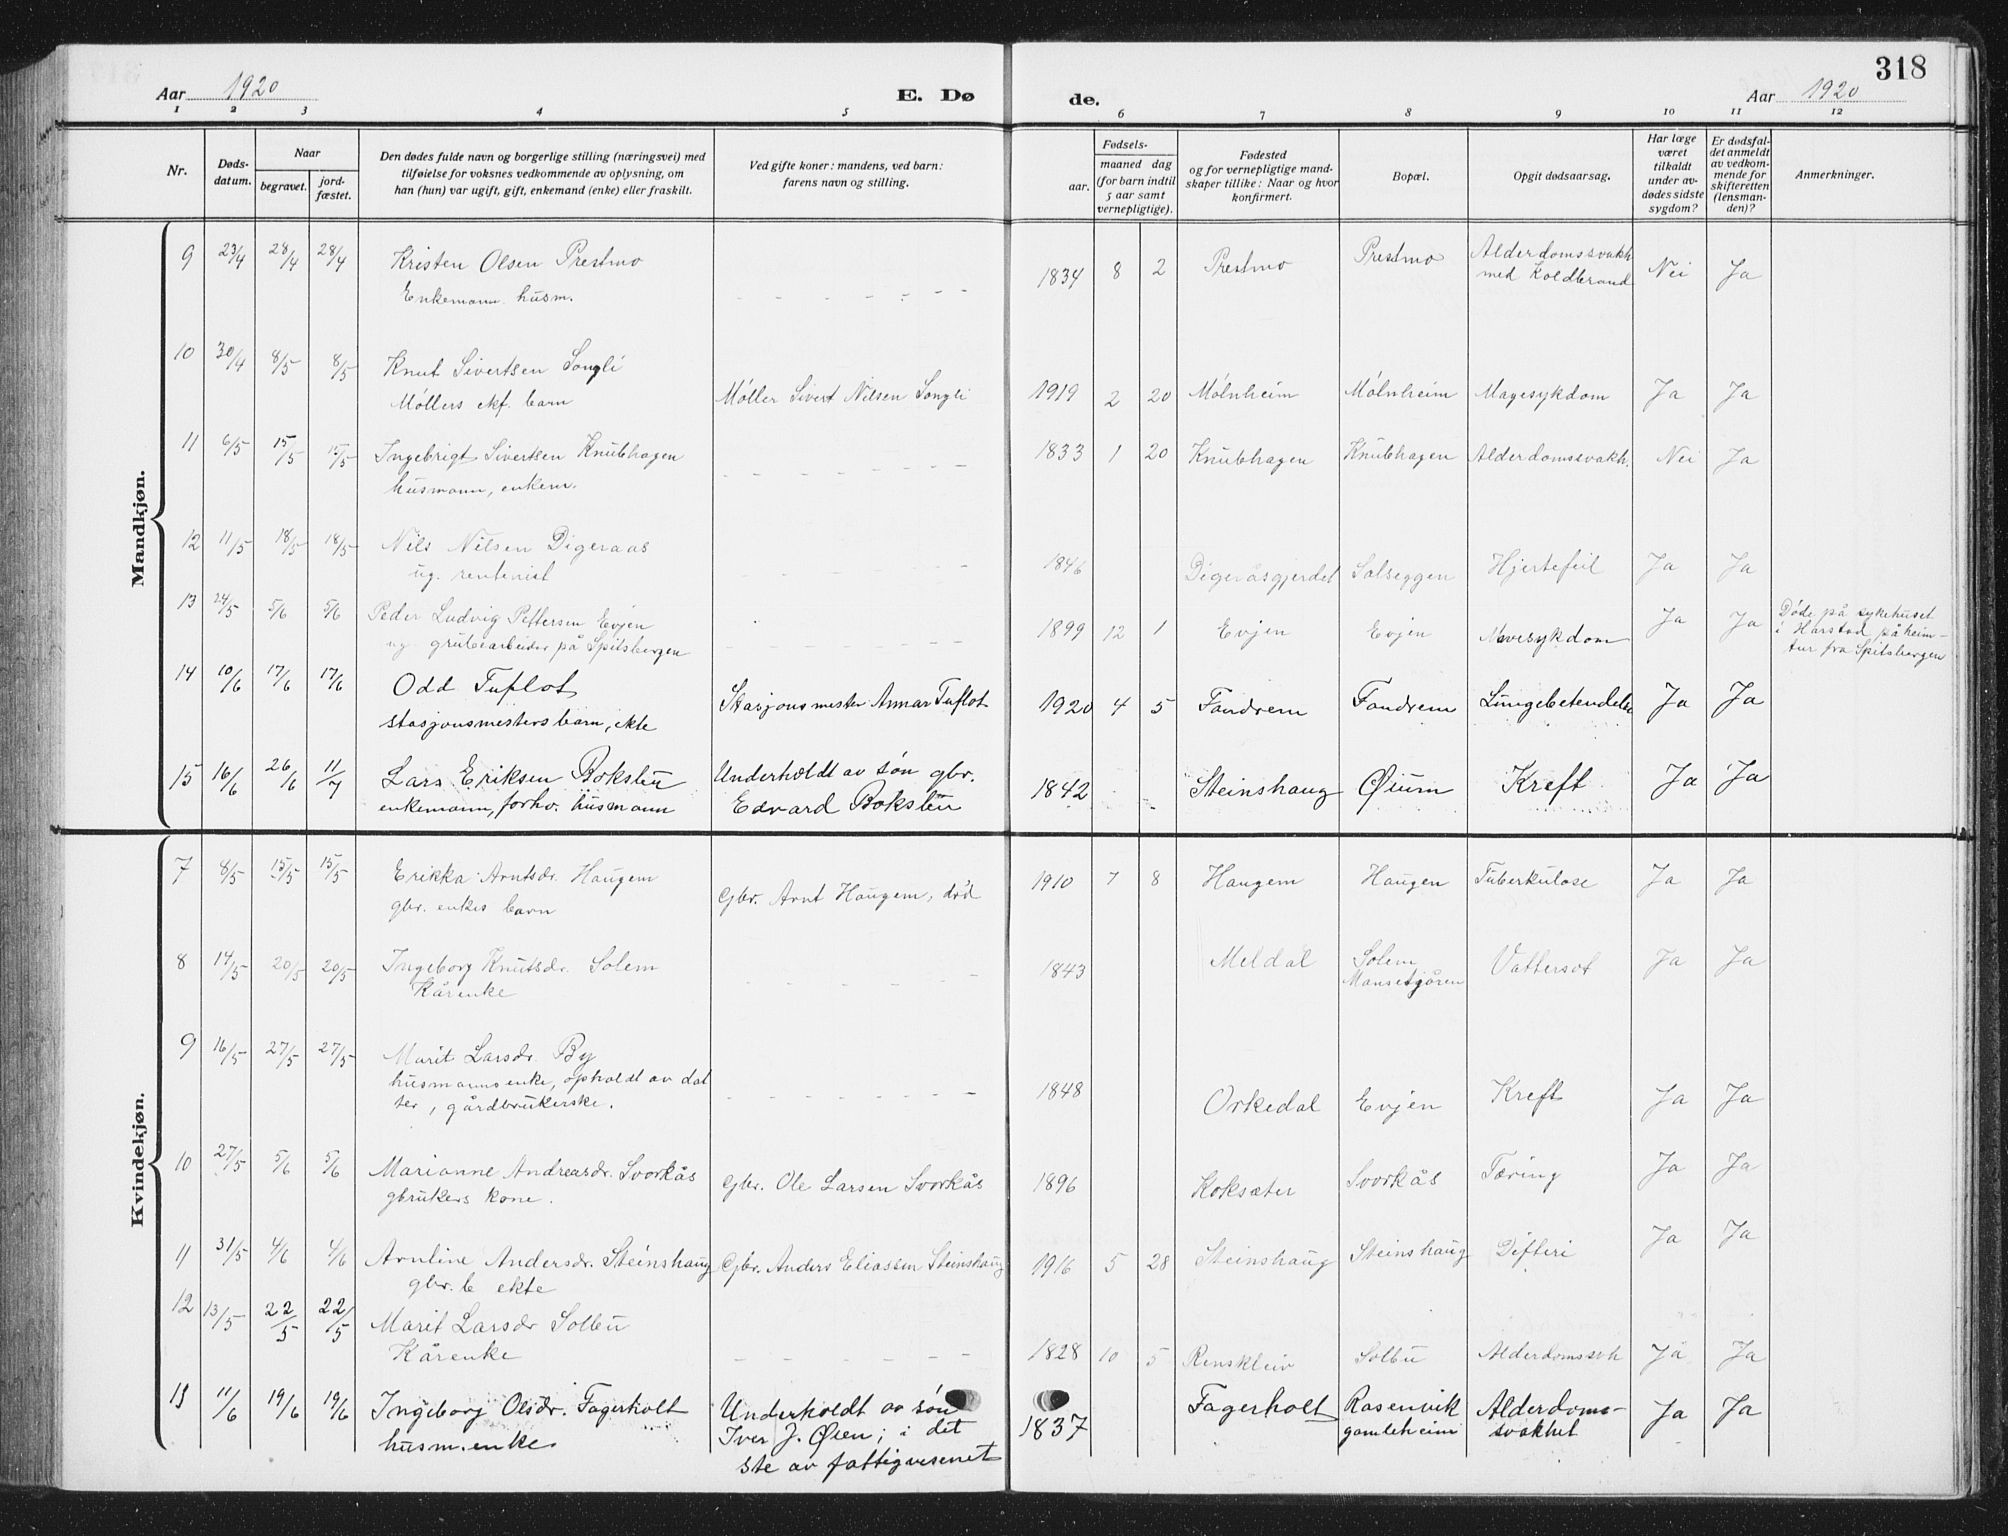 318
Aar 1920 E. Dø de. Aar 1920
1 2 3 4 5 6 7 8 9 10 11 12
Nr.
Døds-
datum.
Naar
begravet.
jord-
fæstet.
Den dødes fulde navn og borgerlige stilling (næringsvei) med
tilføielse for voksnes vedkommende av oplysning, om
han (hun) var ugift, gift, enkemand (enke) eller fraskilt.
Ved gifte koner: mandens, ved barn:
farens navn og stilling.
Fødsels-
aar.
maaned dag
(for barn indtil
5 aar samt
vernepligtige).
Fødested
og for vernepligtige mand-
skaper tillike: Naar og hvor
konfirmert.
Bopæl.
Opgit dødsaarsag.
Har læge
været
tilkaldt
under av-
dødes sidste
sygdom?
Er dødsfal-
det anmeldt
av vedkom-
mende for
skifteretten
(lensman-
den)?
Anmerkninger.
Mandkjøn.
9 23/4 28/4 28/4 Kristen Olsen Prestmo 1834 8 2 Prestmo Prestmo Alderdomssvakh. Nei Ja
Enkemann husm. med Koldbrand
10 30/4 8/5 8/5 Knut Sivertsen Songli
Møllers ekf. barn Møller Sivert Nilsen Songli 1919 2 20 Mólnheim Mólnheim Magesykdom Ja Ja
11 6/5 15/5 15/5 Ingebrigt Sivertsen Knubhagen 1833 1 20 Knubhagen Knubhagen Alderdomssvakh. Nei Ja
husmann, enkem.
12 11/5 18/5 18/5 Nils Nilsen Digeraas 1846 Digeråsgjerdet Solseggen Hjertefeil Ja Ja
ug. rentenist
13 24/5 5/6 5/6 Peder Ludvig Pettersen Evjen 1899 12 1 Evjen Evjen Mavesykdom Ja Ja Døde på sykehuset
ug. grubearbeider på Spitsbergen i Harstad på heim-
tur fra Spitsbergen
14 10/6 17/6 17/6 Odd Tuflot Stasjonsmester Annar Tuflot 1920 4 5 Fandrem Fandrem Lungebetendelse Ja Ja
stasjonsmesters barn, ekte
15 16/6 26/6 11/7 Lars Eriksen Bokslu Underholdt av søn gbr. 1842 Steinshaug Øium Kreft Ja Ja
enkemann, forhv. husmann Edvard Bokslu
Kvindekjøn.
7 8/5 15/5 15/5 Erikka Arntsdr. Haugem Gbr. Arnt Haugem, død 1910 7 8 Haugem Haugen Tuberkulose Ja Ja
gbr. enkes barn
8 14/5 20/5 20/5 Ingeborg Knutsdr. Solem 1843 Meldal Solem Vattersot Ja Ja
Kårenke
9 16/5 27/5 27/5 Marit Larsdr. By 1848 Orkedal Evjen Kreft Ja Ja
husmanns enke, opholdt av dat
ter, gårdbrukerske.
10 27/5 5/6 5/6 Marianne Andreasdr. Svorkås Gbr. Ole Larsen Svorkås 1896 Koksæter Svorkås Tæring Ja Ja
gbrukers kone.
11 31/5 4/6 4/6 Arnline Andersdr. Steinshaug Gbr. Anders Eliassen Steinshaug 1916 5 28 Steinshaug Steinshaug Difteri Ja Ja
gbr. b ekte
12 13/5 22/5 22/5 Marit Larsdr Solbu 1828 10 5 Rensklein Solbu Alderdomssvh Ja Ja
Kårenke
13 11/6 19/6 19/6 Ingeborg Olsdr. Fagerholt Underholdt av søn 1837 Fagerholt Rosenvik Alderdoms- Ja Ja
husm. enke Iver J. Øien; i det gamleheim svakhet
ste av fattigvesenet